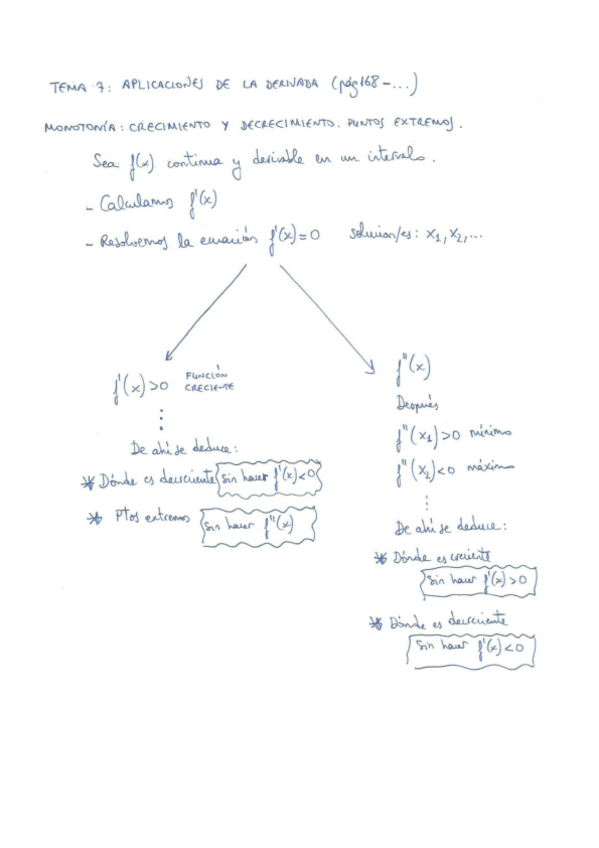 TEMA 7: APLICACIONES DE LA DERIVADA (pág 168 - ...)
MONOTONÍA: CRECIMIENTO Y DECRECIMIENTO. PUNTOS EXTREMOS.
Sea f(x) continua y derivable en un intervalo.
- Calculamos f'(x)
- Resolvemos la ecuación f'(x)=0 solucion/es: x₁, x₂, ...
f'(x)>0 FUNCIÓN CRECIENTE
⋮
De ahí se deduce:
* Dónde es decreciente sin hacer f'(x)<0
* Ptos extremos sin hacer f''(x)
f''(x)
Después
f''(x₁)>0 mínimo
f''(x₂)<0 máximo
⋮
De ahí se deduce:
* Dónde es creciente
sin hacer f'(x)>0
* Dónde es decreciente
sin hacer f'(x)<0